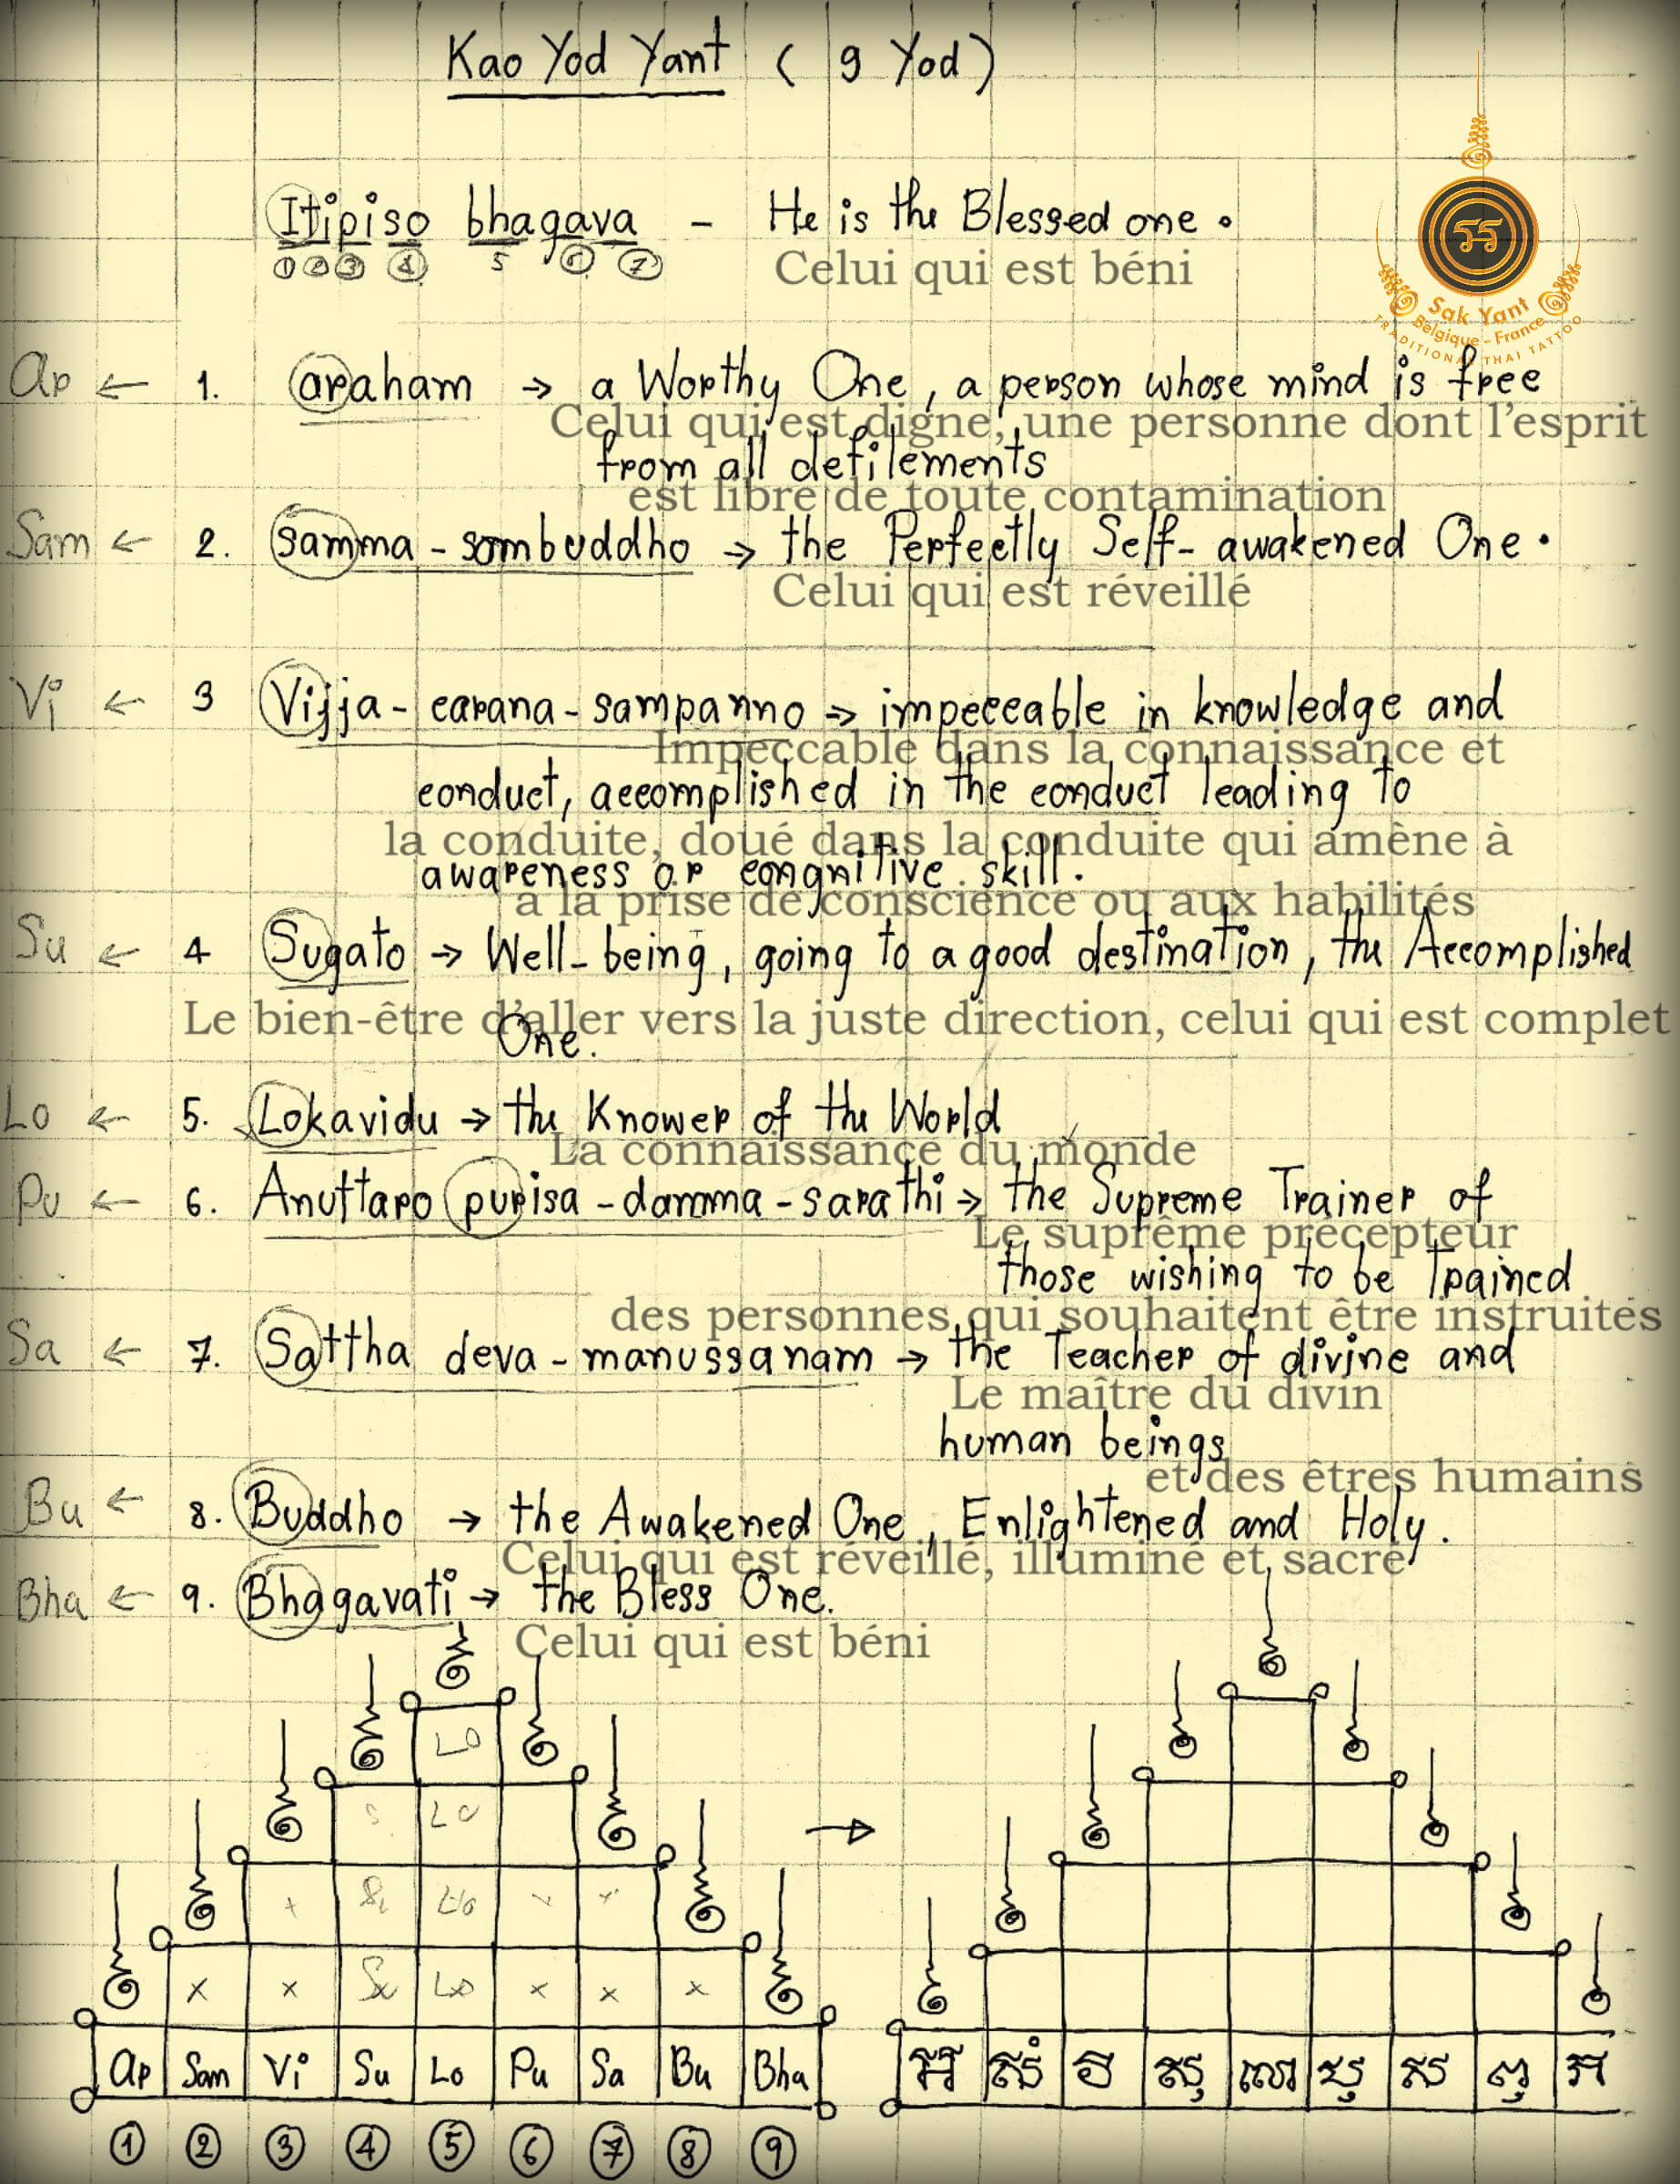 Kao Yod Yant ( 9 Yod )
Itipiso bhagava - He is the Blessed one.
① ② ③ ④ 5 ⑥ ⑦
Celui qui est béni
Sak Yant
Belgique - France
TRADITIONAL THAI TATTOO
Ar ← 1. araham → a Worthy One, a person whose mind is free
Celui qui est digne, une personne dont l'esprit
from all defilements
est libre de toute contamination
Sam ← 2. samma - sombuddho → the Perfectly Self- awakened One.
Celui qui est réveillé
Vi ← 3 Vijja - carana - sampanno → impeccable in knowledge and
Impeccable dans la connaissance et
conduct, accomplished in the conduct leading to
la conduite, doué dans la conduite qui amène à
awareness or congnitive skill.
a la prise de conscience ou aux habilités
Su ← 4 Sugato → Well-being, going to a good destination, the Accomplished
Le bien-être d'aller vers la juste direction, celui qui est complet
One.
Lo ← 5. Lokavidu → the Knower of the World
La connaissance du monde
Pu ← 6. Anuttaro purisa - damma - sarathi → the Supreme Trainer of
Le suprême précepteur
those wishing to be Trained
des personnes qui souhaitent être instruites
Sa ← 7. Sattha deva - manussanam → the Teacher of divine and
Le maître du divin
human beings
et des êtres humains
Bu ← 8. Buddho → the Awakened One, Enlightened and Holy.
Celui qui est réveillé, illuminé et sacré
Bha ← 9. Bhagavati → the Bless One.
Celui qui est béni
Lo
Lo
Su Lo
x x Su Lo x x x
Ar Sam Vi Su Lo Pu Sa Bu Bha
① ② ③ ④ ⑤ ⑥ ⑦ ⑧ ⑨